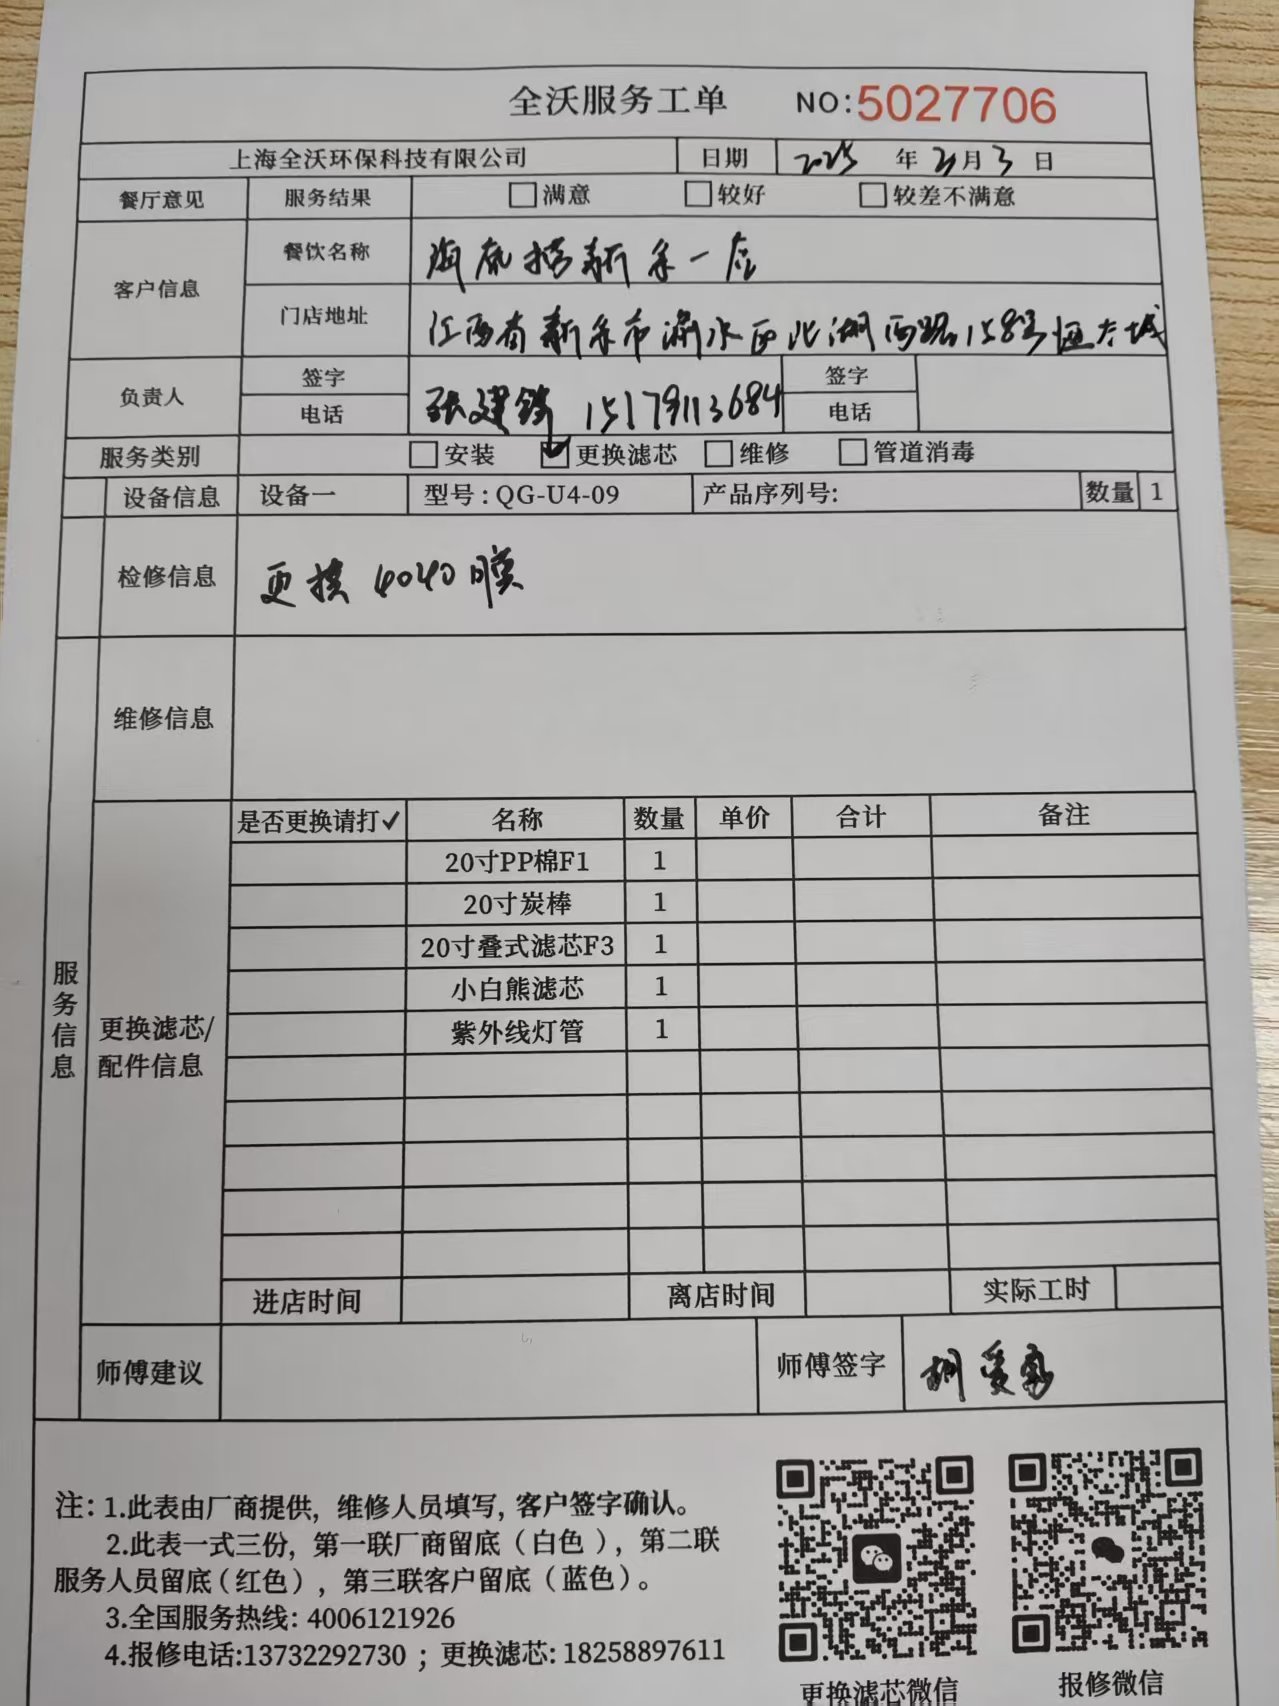 全沃服务工单 NO:5027706
上海全沃环保科技有限公司 日期 2025 年 月 3 日
餐厅意见 服务结果 □满意 □较好 □较差不满意
客户信息 餐饮名称 海底捞新余一店
门店地址 江西省新余市渝水区北湖西路158号恒大城
负责人 签字 张建 签字
电话 15179113684 电话
服务类别 □安装 ☑更换滤芯 □维修 □管道消毒
设备信息 设备一 型号:QG-U4-09 产品序列号: 数量 1
检修信息 更换4040膜
维修信息
服务信息
更换滤芯/
配件信息
是否更换请打✓ 名称 数量 单价 合计 备注
20寸PP棉F1 1
20寸炭棒 1
20寸叠式滤芯F3 1
小白熊滤芯 1
紫外线灯管 1
进店时间 离店时间 实际工时
师傅建议 师傅签字 胡
注:1.此表由厂商提供,维修人员填写,客户签字确认。
2.此表一式三份,第一联厂商留底(白色),第二联
服务人员留底(红色),第三联客户留底(蓝色)。
3.全国服务热线:4006121926
4.报修电话:13732292730;更换滤芯:18258897611
更换滤芯微信 报修微信